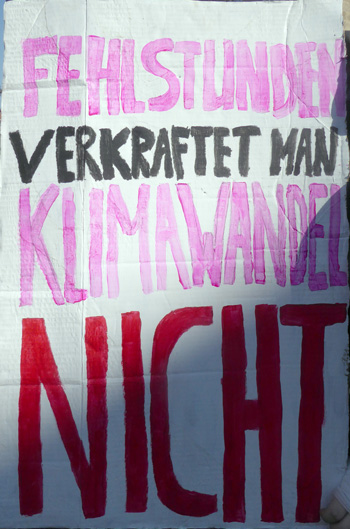 FEHLSTUNDEN
VERKRAFTET MAN
KLIMAWANDEL
NICHT